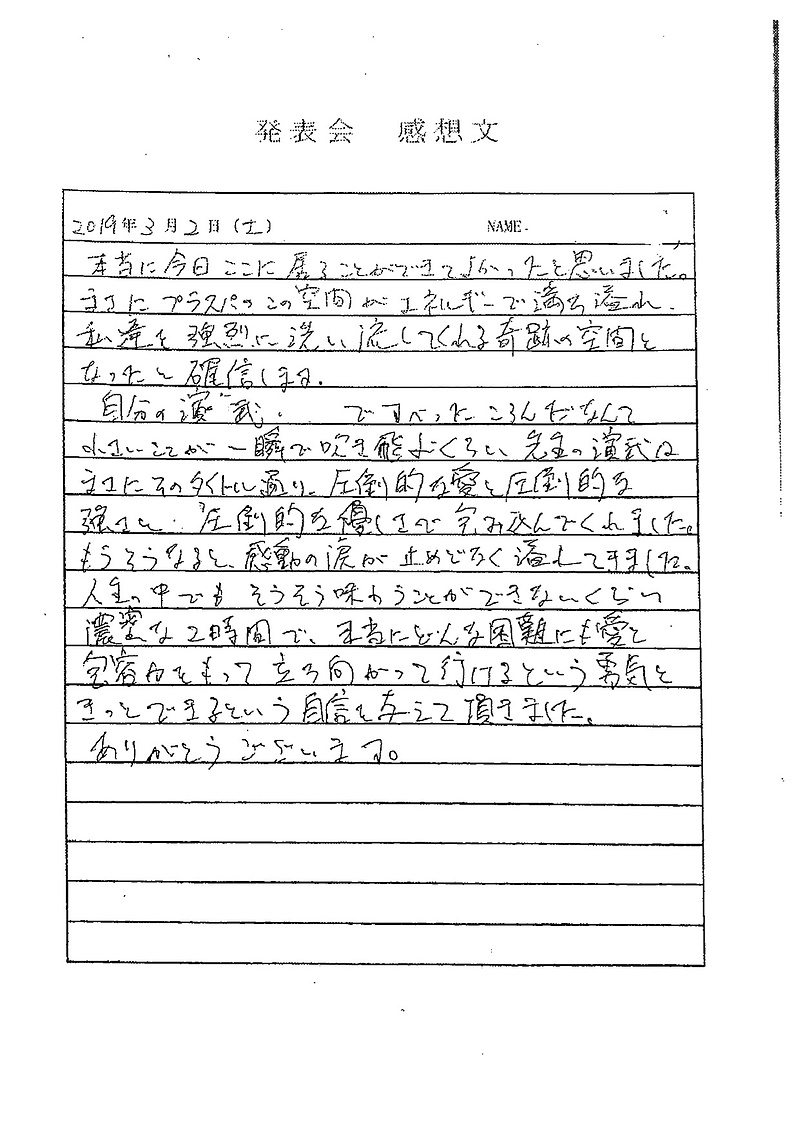 発表会 感想文
2019年3月2日(土) NAME.
本当に今日ここに居ることができてよかったと思いました。
まさにプラスパのこの空間がエネルギーで満ち溢れ、
私達を強烈に洗い流してくれる奇跡の空間と
なったと確信します。
自分の演武. ですべったころんだなんて
小さいことが一瞬で吹き飛ぶくらい先生の演武は
まさにそのタイトル通り、圧倒的な愛と圧倒的な
強さと、圧倒的な優しさで包み込んでくれました。
もうそうなると、感動の涙が止めどなく溢れてきました。
人生の中でもそうそう味わうことができないくらい
濃密な2時間で、本当にどんな困難にも愛と
包容力をもって立ち向かって行けるという勇気と
きっとできるという自信を与えて頂きました。
ありがとうございます。